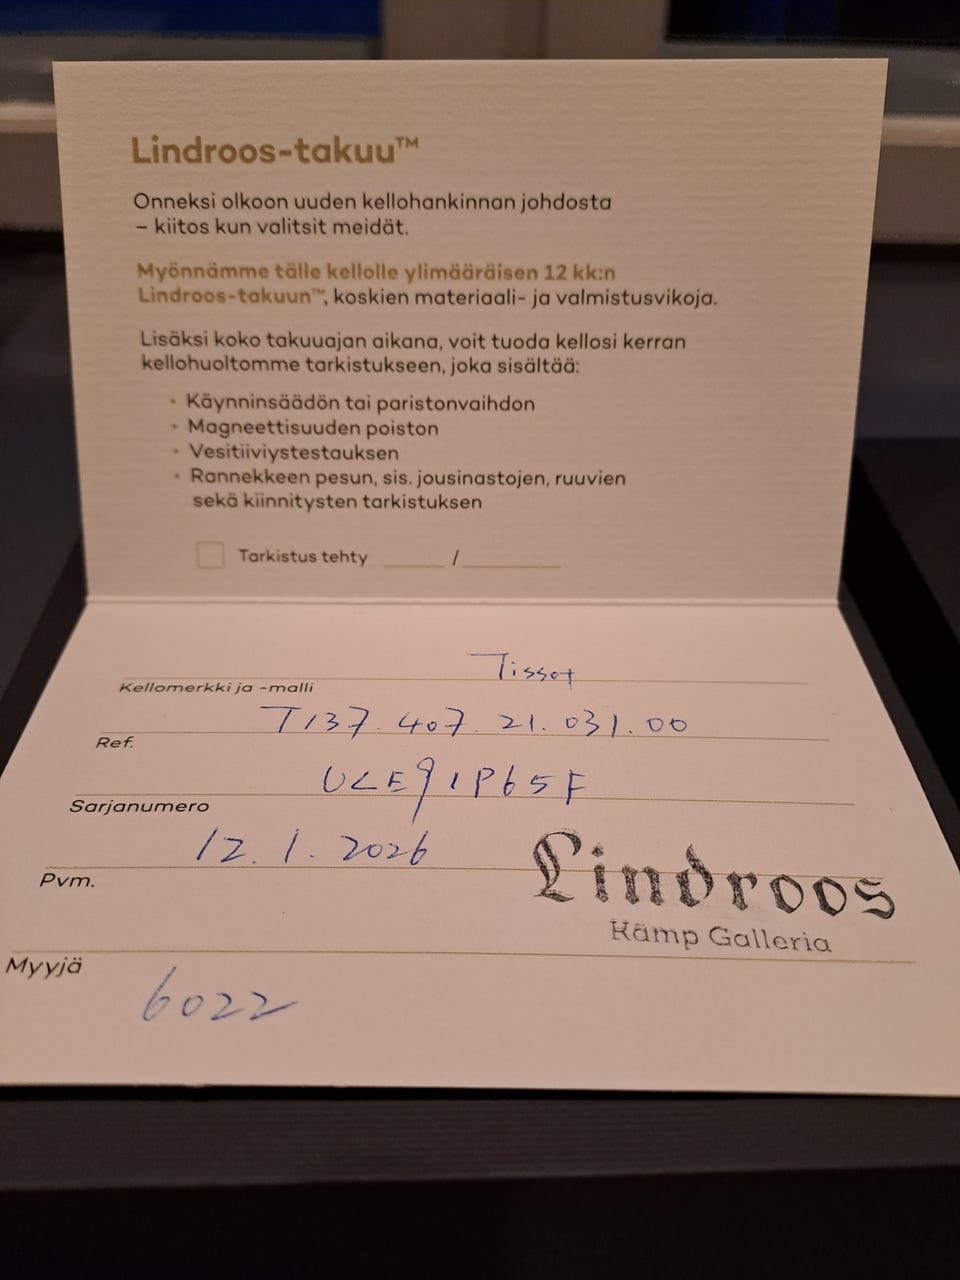 Lindroos-takuu™
Onneksi olkoon uuden kellohankinnan johdosta
– kiitos kun valitsit meidät.
Myönnämme tälle kellolle ylimääräisen 12 kk:n
Lindroos-takuun™, koskien materiaali- ja valmistusvikoja.
Lisäksi koko takuuajan aikana, voit tuoda kellosi kerran
kellohuoltomme tarkistukseen, joka sisältää:
• Käynninsäädön tai paristonvaihdon
• Magneettisuuden poiston
• Vesitiiviystestauksen
• Rannekkeen pesun, sis. jousinastojen, ruuvien
sekä kiinnitysten tarkistuksen
Tarkistus tehty ____ / ______
Tissot
Kellomerkki ja -malli
T137.407.21.031.00
Ref.
Sarjanumero
12.1.2026
Pvm.
Lindroos
Kämp Galleria
Myyjä
6022